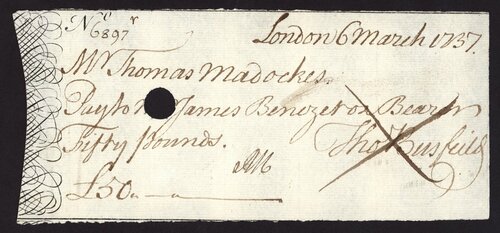 No 6897
London 6 March 1737.
Mr Thomas Madockes.
Pay to James Benezet or Bearer
Fifty Pounds.
Tho
£50